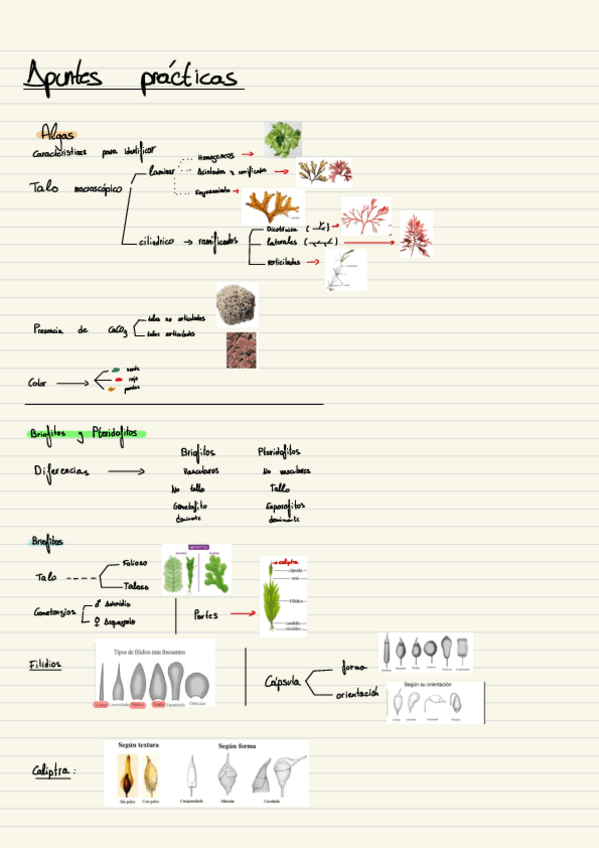 Apuntes prácticas
Algas
Características para identificar
Talo macroscópico
laminar
Homogeneos
Acintados y ramificados
Engrosamiento
cilíndrico → ramificados
Dicotómica ( )
laterales ( )
verticiladas
Presencia de CaCO3
talos no articulados
talos articulados
Color
verde
rojo
pardas
Briofitos y Pteridofitos
Diferencias
Briofitos Pteridofitos
Vasculares No vasculares
No tallo Tallo
Gametofito Esporofitos
dominante dominante
Briofitos
Talo
Folioso
Taloso
Gametangios
♂ Anteridio
♀ Arquegonio
Partes
caliptra
cápsula
seta
Filidios
caulidio
rizoides
Filidios
Tipos de filidios más frecuentes
Linear Lanceolada Espatulada Orbicular
Cápsula
forma
orientación
Según su orientación
Caliptra:
Según textura Según forma
Sin pelos Con pelos Campanulada Mitrada Cuculada